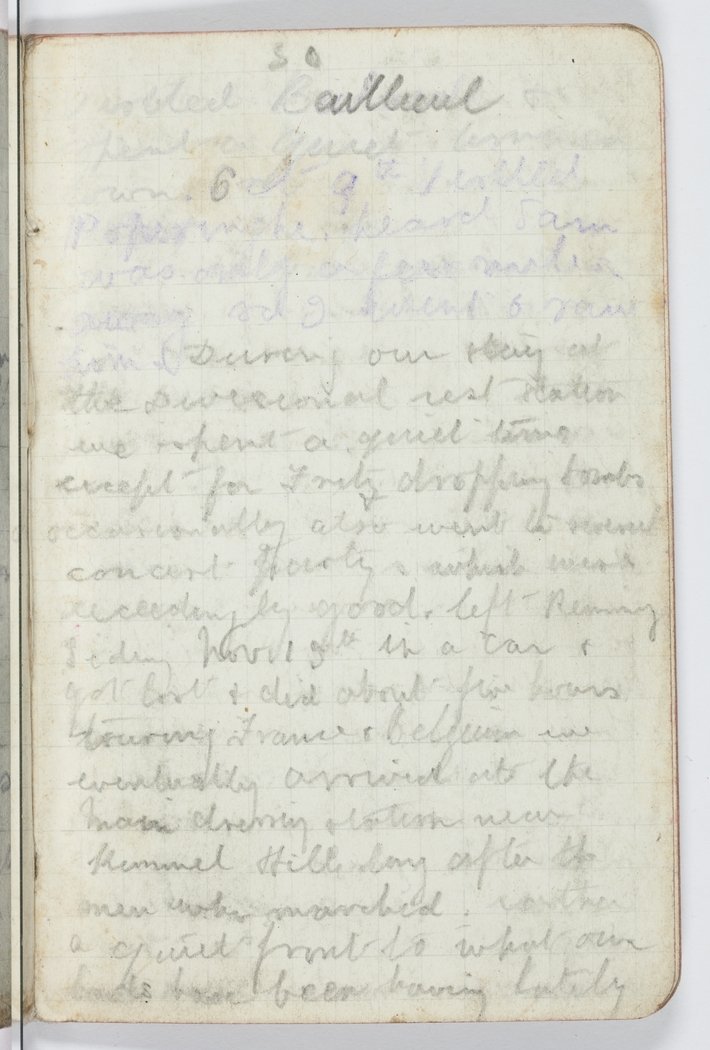 50
visited Bailleul &
spent a quiet
6 Oct 9th Visited
Poperinghe, heard Sam
was only a few miles
away so I went & saw
him. During our stay at
the Divisional rest station
we spent a quiet time
except for Fritz dropping bombs
occasionally also went to several
concert party s which were
exceedingly good. left Remmy
Siding Nov 13th in a car &
got lost & did about five hours
touring France & Belgium we
eventually arrived at the
Main dressing station near
Kemmel Hill long after the
men who marched. rather
a quiet front to what our
lads have been having lately